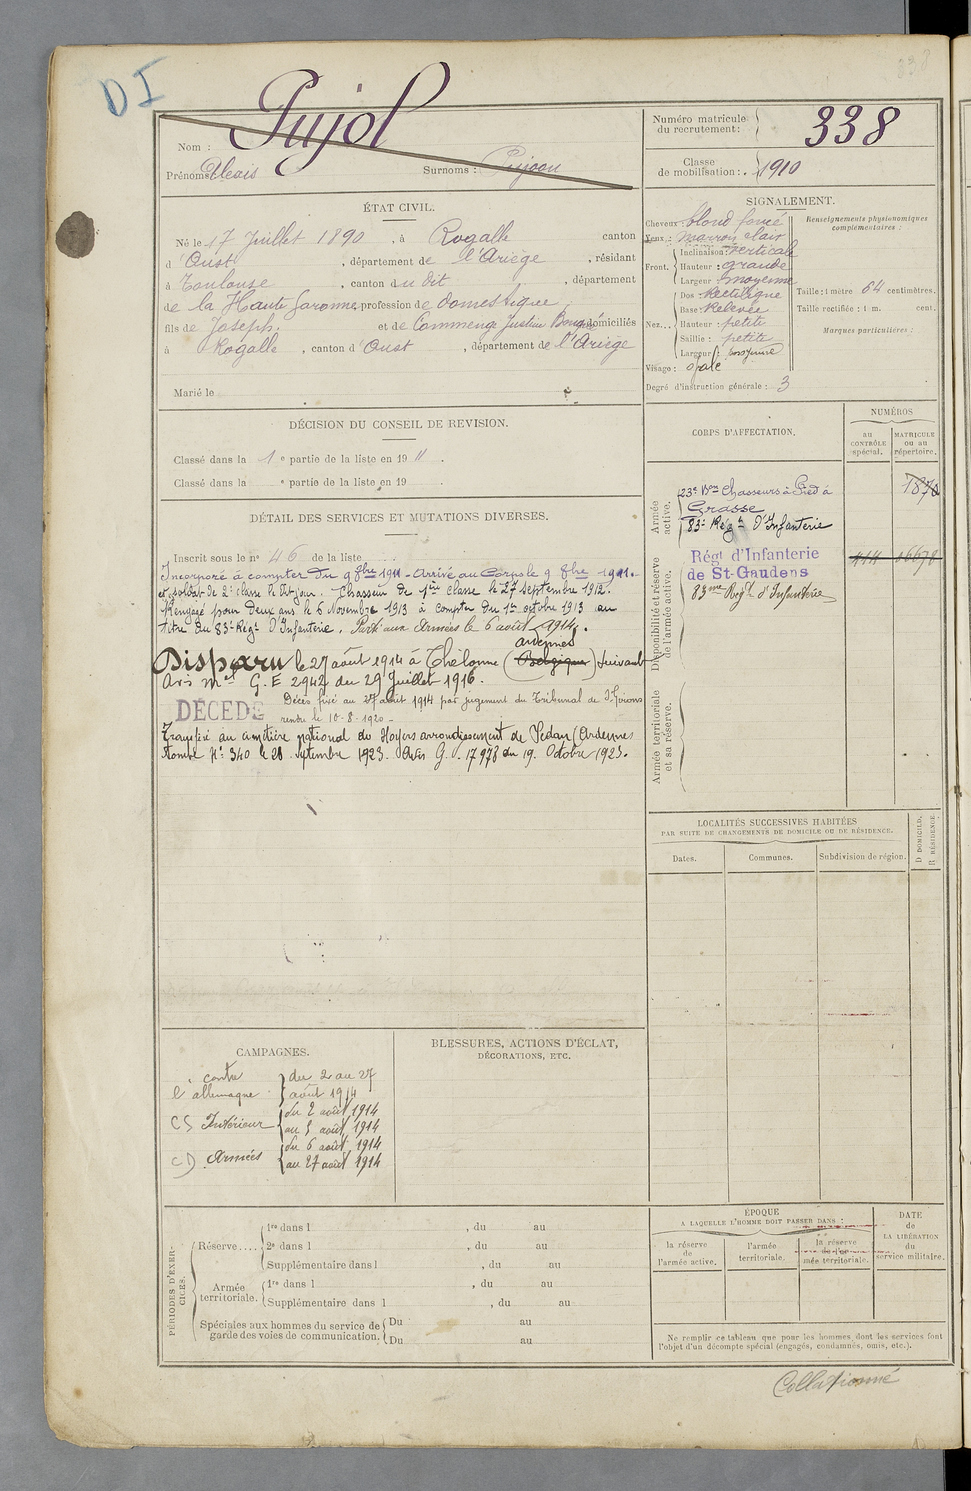 338
DI
Nom : Pujol
Prénoms Alexis Surnoms : Pujoou
Numéro matricule du recrutement : 338
Classe de mobilisation : 1910
ÉTAT CIVIL.
Né le 17 Juillet 1890, à Rogalle canton
d'Oust, département de l'Ariège, résidant
à Toulouse, canton du dit, département
de la Haute Garonne, profession de domestique
fils de Joseph et de Commenge Justine domiciliés
à Rogalle, canton d'Oust, département de l'Ariège
Marié le
SIGNALEMENT.
Cheveux : blond foncé
Yeux : marron clair
Front. Inclinaison : verticale
Hauteur : grande
Largeur : moyenne
Nez... Dos : Rectiligne
Base : Relevée
Hauteur : petite
Saillie : petite
Largeur : moyenne
Visage : ovale
Degré d'instruction générale : 3
Renseignements physionomiques complémentaires :
Taille : 1 mètre 64 centimètres.
Taille rectifiée : 1 m. cent.
Marques particulières :
DÉCISION DU CONSEIL DE REVISION.
Classé dans la 1e partie de la liste en 1911.
Classé dans la e partie de la liste en 19 .
DÉTAIL DES SERVICES ET MUTATIONS DIVERSES.
Inscrit sous le n° 46 de la liste
Incorporé à compter du 9 8bre 1911 - Arrivé au Corps le 9 8bre 1911.
et soldat de 2e classe le dit jour. Chasseur de 1ère classe le 27 septembre 1912.
Rengagé pour deux ans le 6 Novembre 1913 à compter du 1er octobre 1913 au
titre du 83e Régt D'Infanterie. Parti aux Armées le 6 août 1914.
Disparu le 27 août 1914 à Thélonne (Belgique) ardennes suivant
avis mel G.E 2942 du 29 Juillet 1916.
DÉCÉDÉ Décès fixé au 27 août 1914 par jugement du Tribunal de St Girons
rendu le 10-8-1920 -
Transféré au cimetière national de Noyers arrondissement de Sedan (Ardennes
tombe N° 340 le 28 septembre 1923. Avis G.V. 17978 du 19 Octobre 1923.
CORPS D'AFFECTATION.
NUMÉROS
au CONTRÔLE spécial.
MATRICULE ou au répertoire.
Armée active.
23e Bon Chasseurs à Pied à
Grasse
83e Régt D'Infanterie
1870
Disponibilité et réserve de l'armée active.
Régt d'Infanterie
de St-Gaudens
83me Regt d'Infanterie
Armée territoriale et sa réserve.
LOCALITÉS SUCCESSIVES HABITÉES
PAR SUITE DE CHANGEMENTS DE DOMICILE OU DE RÉSIDENCE.
Dates.
Communes.
Subdivision de région.
D DOMICILE.
R RÉSIDENCE.
CAMPAGNES.
contre l'allemagne du 2 au 27 août 1914
CS Intérieur du 2 août 1914 au 5 août 1914
CD Armées du 6 août 1914 au 27 août 1914
BLESSURES, ACTIONS D'ÉCLAT,
DÉCORATIONS, ETC.
PÉRIODES D'EXERCICES.
Réserve.... 1re dans l , du au
2e dans l , du au
Supplémentaire dans l , du au
Armée territoriale. 1re dans l , du au
Supplémentaire dans l , du au
Spéciales aux hommes du service de garde des voies de communication. Du au
Du au
ÉPOQUE
A LAQUELLE L'HOMME DOIT PASSER DANS :
la réserve de l'armée active.
l'armée territoriale.
la réserve de l'armée territoriale.
DATE de LA LIBÉRATION du service militaire.
Ne remplir ce tableau que pour les hommes dont les services font
l'objet d'un décompte spécial (engagés, condamnés, omis, etc.).
Collationné